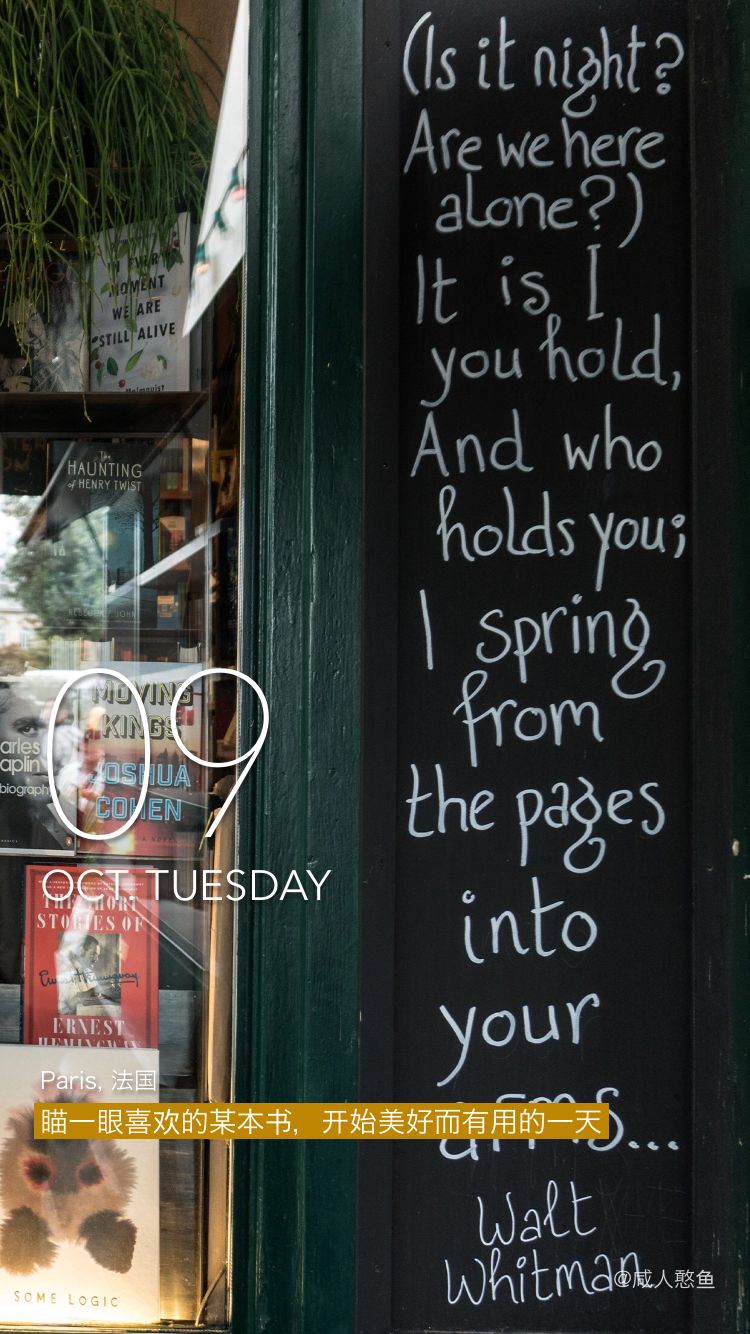 (Is it night?
Are we here
alone?)
It is I
you hold,
And who
holds you;
I spring
from
the pages
into
your
arms...
Walt
Whitman
MOMENT
WE ARE
STILL ALIVE
The
HAUNTING
of HENRY TWIST
MOVING
KINGS
JOSHUA
COHEN
A NOVEL
arles
aplin
biography
09
OCT TUESDAY
THE SHORT
STORIES OF
Ernest Hemingway
ERNEST
HEMINGWAY
Paris, 法国
瞄一眼喜欢的某本书，开始美好而有用的一天
SOME LOGIC
@咸人憨鱼